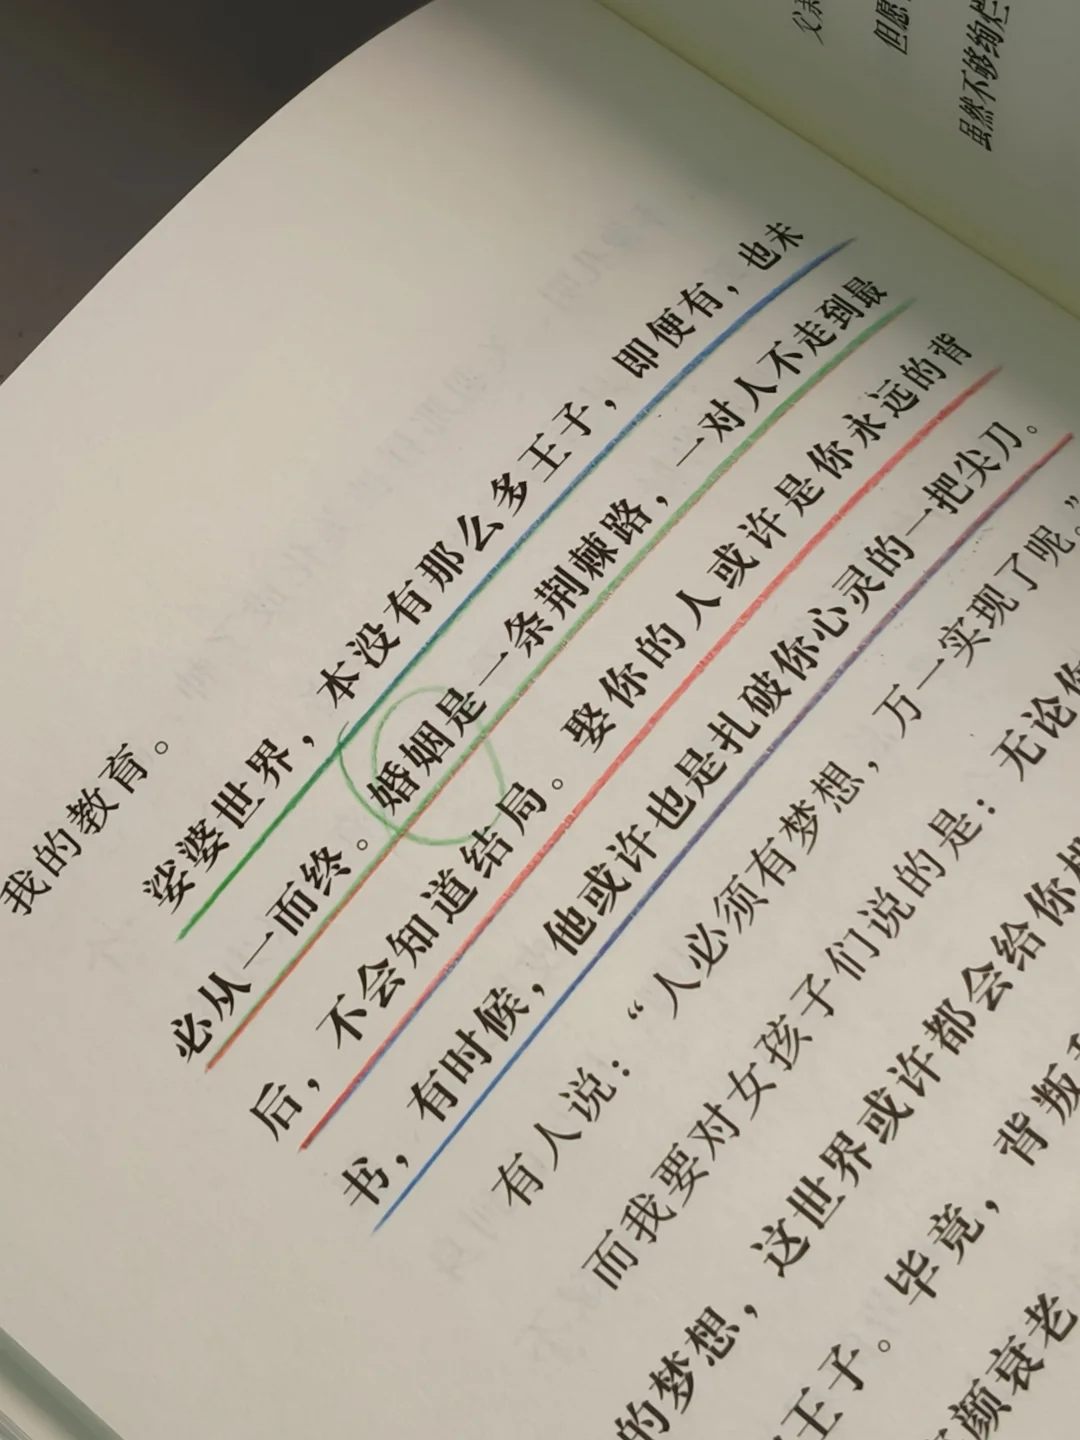 父亲
但愿
虽然不够绚烂
我的教育。
娑婆世界，本没有那么多王子，即便有，也未
必从一而终。婚姻是一条荆棘路，一对人不走到最
后，不会知道结局。娶你的人或许是你永远的背
书，有时候，他或许也是扎破你心灵的一把尖刀。
有人说：“人必须有梦想，万一实现了呢。”
而我要对女孩子们说的是：无论你
的梦想，这世界或许都会给你
王子。毕竟，背叛
颜衰老